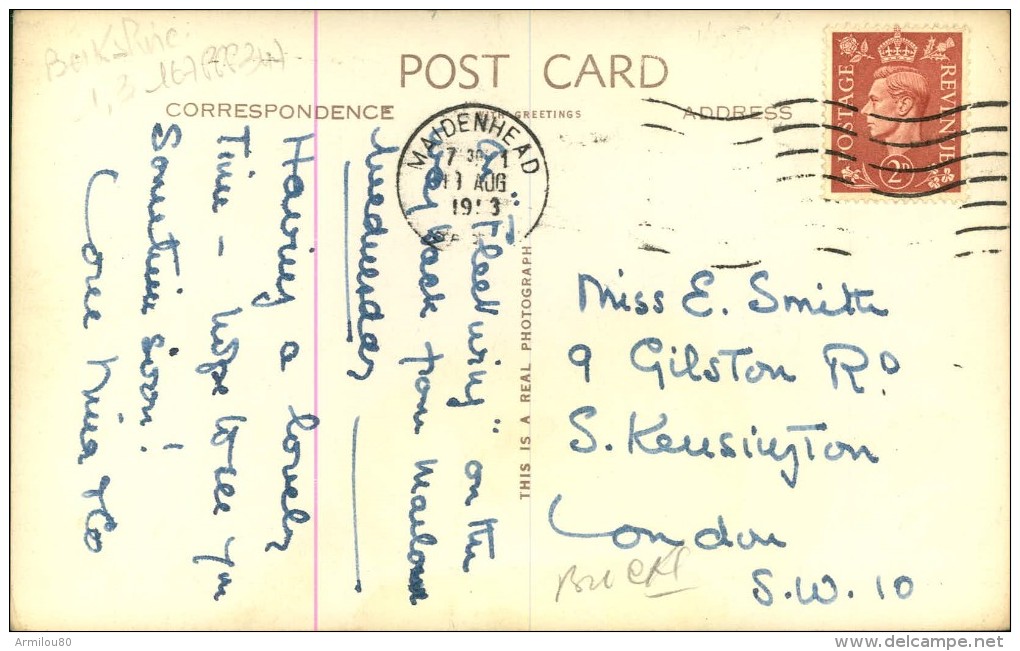 Berkshire
POST CARD
CORRESPONDENCE
WITH GREETINGS
ADDRESS
POSTAGE
REVENUE
2D
MAIDENHEAD
7 30
AUG
THIS IS A REAL PHOTOGRAPH
On "Fleetwing" on the
way back from Marlow
Wednesday
Having a lovely
Time - hope to see you
Sometime soon!
Love Nina
Miss E. Smith
9 Gilston Rd
S. Kensington
London
S.W. 10
Armilou80
www.delcampe.net